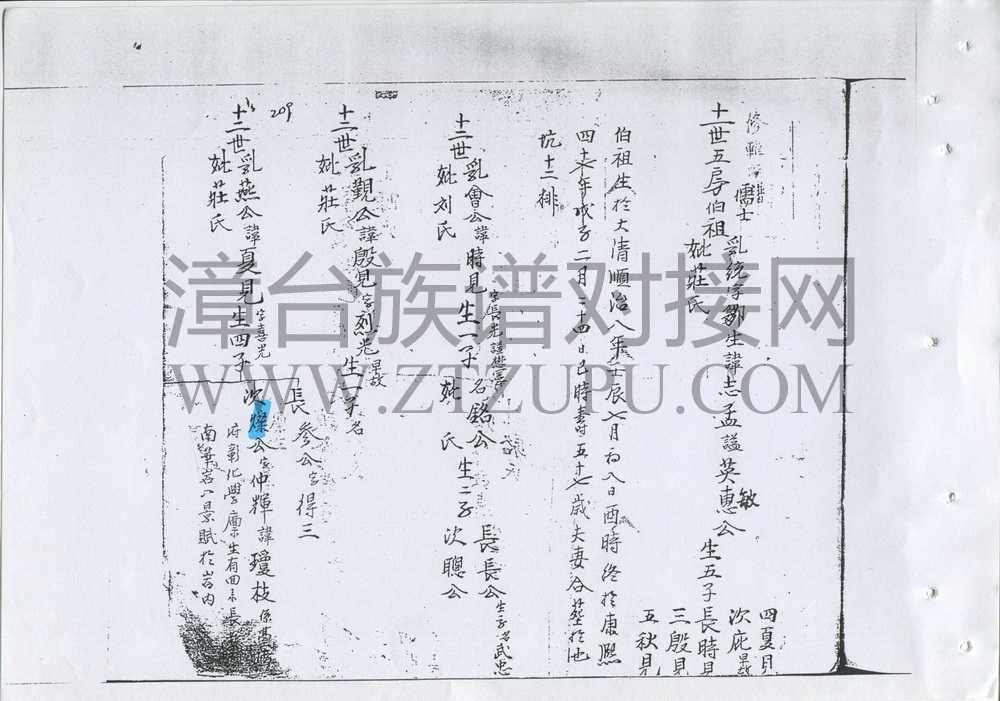 儒士
十一世五房伯祖
乳統字鄒生諱志孟諡英惠公
敏
妣莊氏
生五子長時見
次庇
三殷見
四夏見
五秋見
伯祖生於大清順治八年壬辰七月初八日酉時終於康熙
四十七年戊子二月二十四日巳時壽五十七歲夫妻合葬於池
坑十二排
十二世乳會公諱時見生一子名銘公
字長光諡
妣刘氏
妣 氏生二子
長長公
生子名武忠
次聰公
十二世乳觀公諱殷見字烈光生一子名
早故
妣莊氏
209
十二世乳燕公諱夏見生四子
字喜光
妣莊氏
長參公字得三
次燦公字仲輝諱瓊枝
府彰化學廩生有回
南華岩八景賦於岩內
漳台族谱对接网
WWW.ZTZUPU.COM